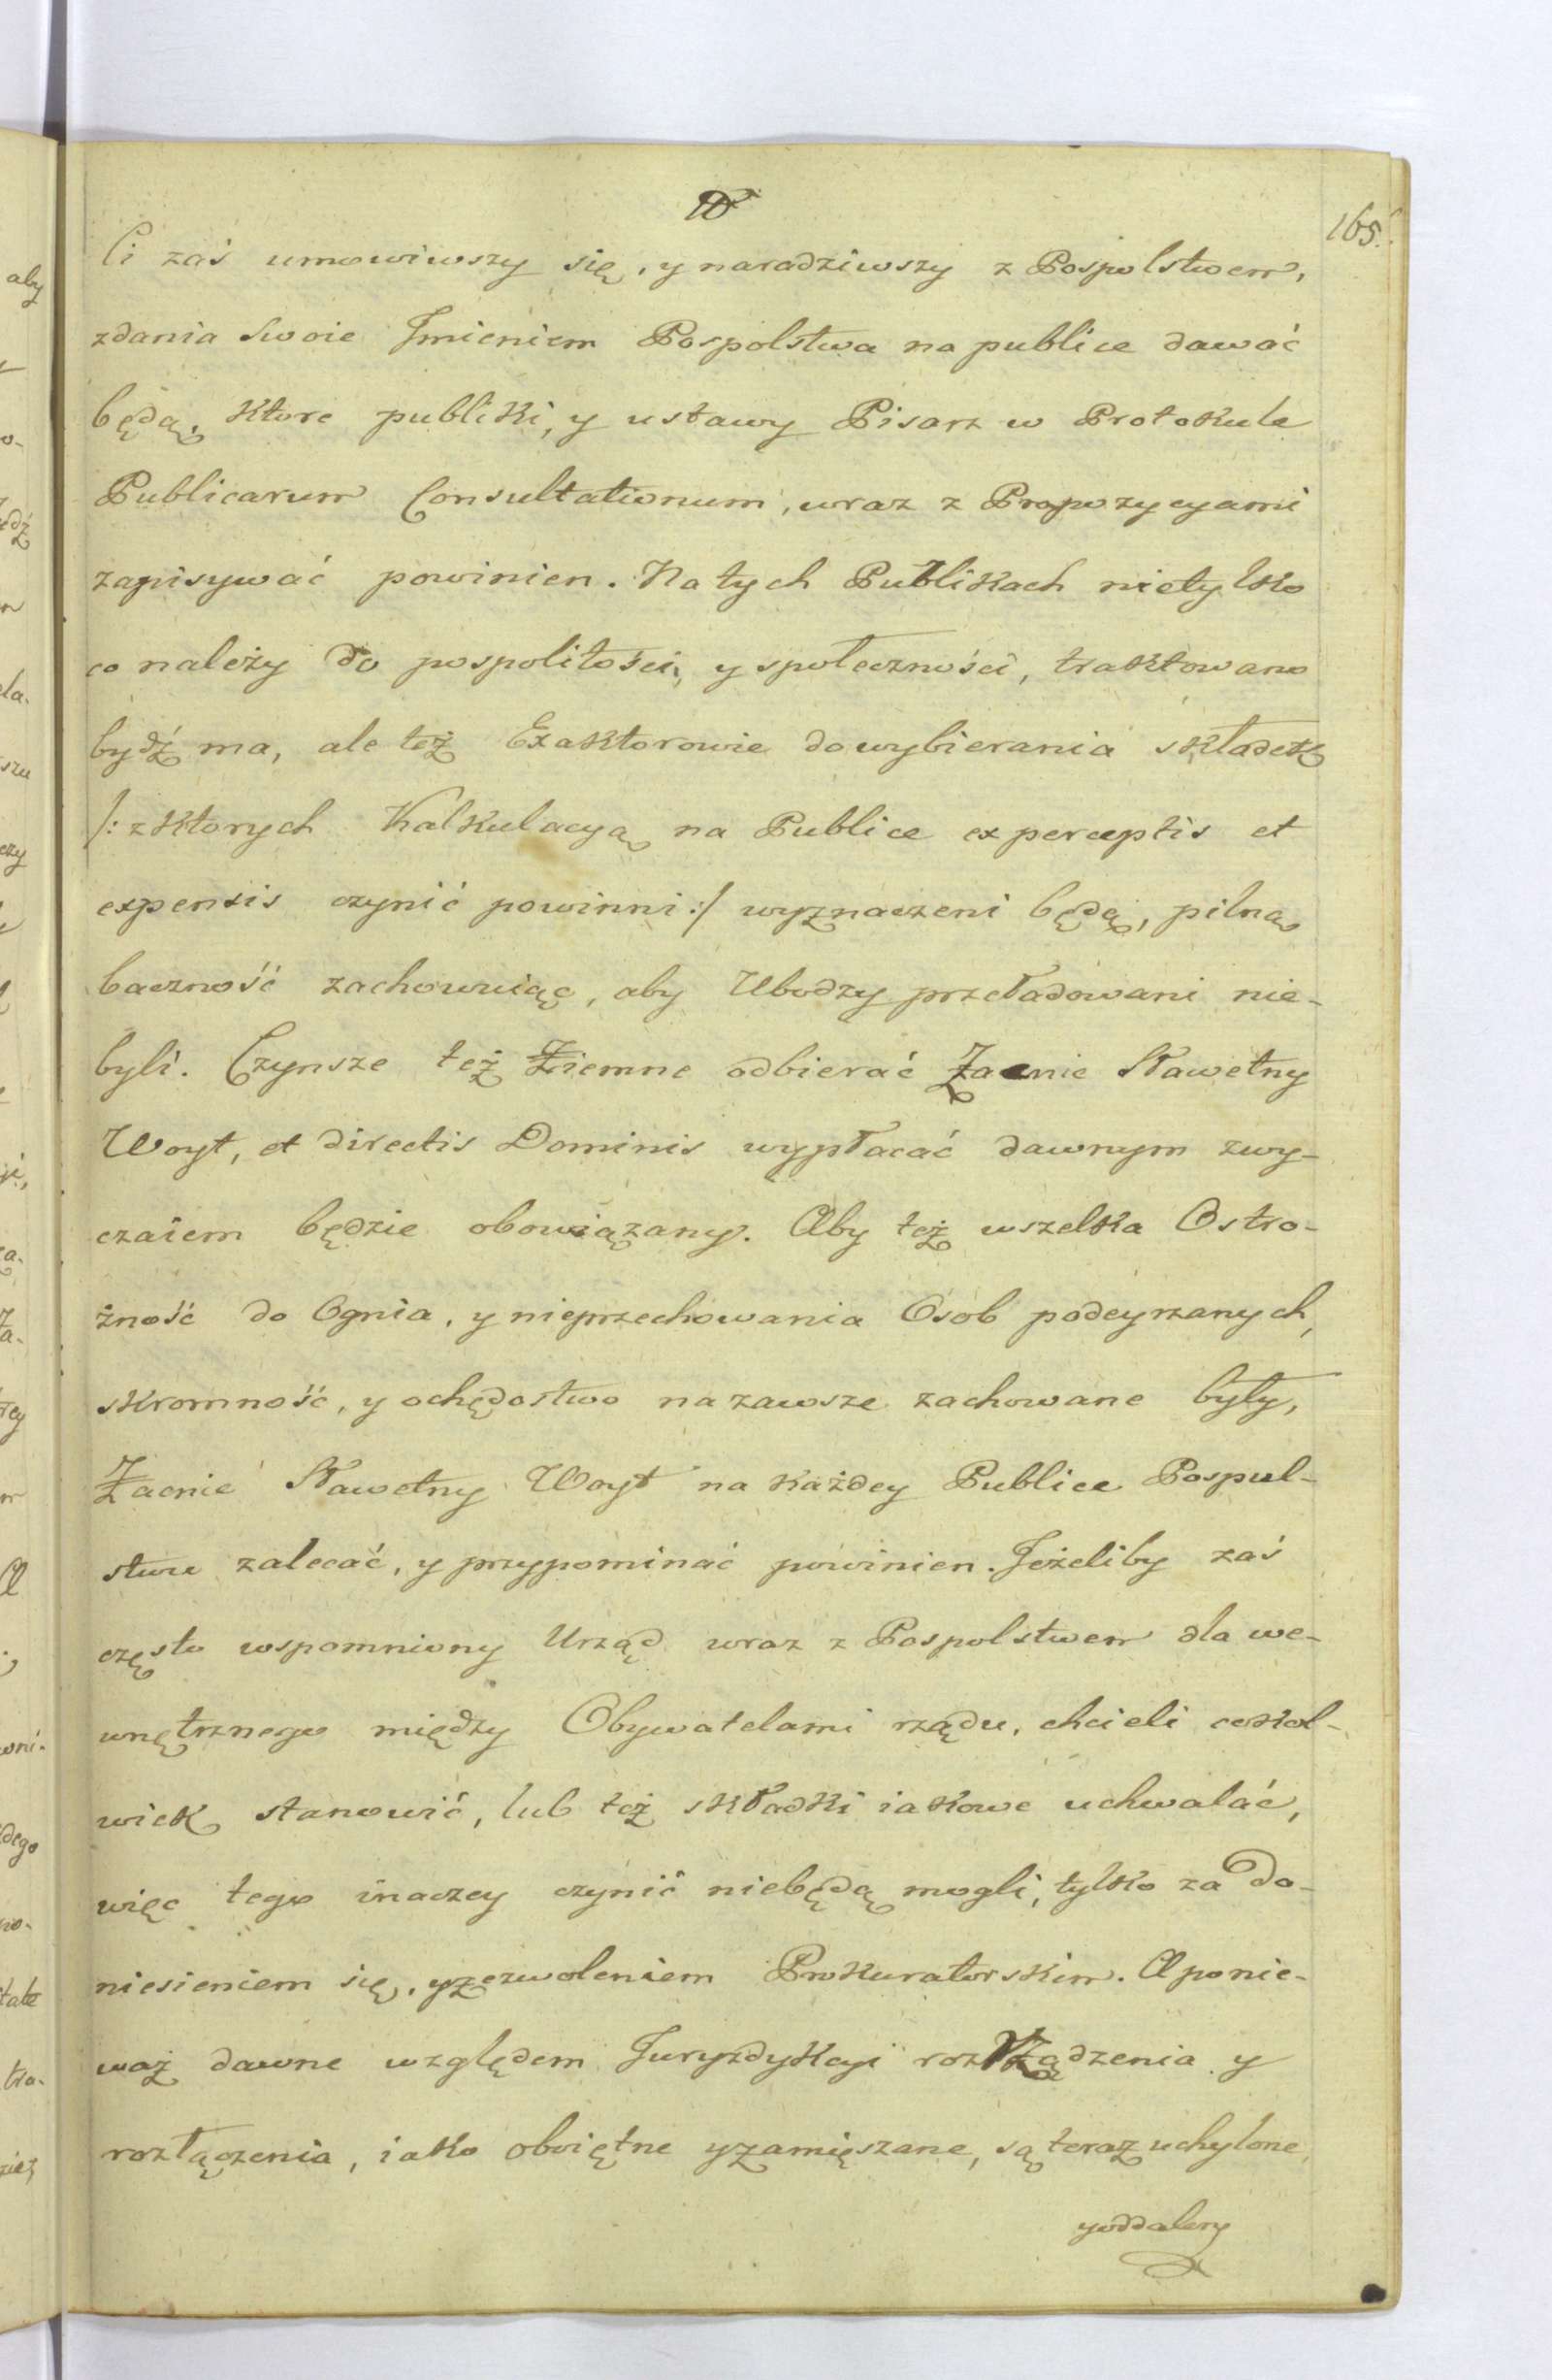 165.
Ci zaś umowiwszy się, y naradziwszy z Pospolstwem,
zdania Swoie Jmieniem Pospolstwa na publice dawać
będą, ktore publiki, y ustawy Pisarz w Protokule
Publicarum Consultationum, wraz z Propozycyami
zapisywać powinien. Na tych Publikach nietylko
co należy do pospolitości, y społeczności, traktowano
bydź ma, ale też Exaktorowie do wybierania składek
/: z ktorych Kalkulacyą na Publice ex perceptis et
expensis czynić powinni :/ wyznaczeni będą, pilną
baczność zachowuiąc, aby Ubodzy przeładowani nie-
byli. Czynsze też Ziemne odbierać Zacnie Sławetny
Woyt, et directis Dominis wypłacać dawnym zwy-
czaiem będzie obowiązany. Aby też wszelka Ostro-
żność do Ognia, y nieprzechowania Osob podeyrzanych,
skromność, y ochędostwo na zawsze zachowane były,
Zacnie Sławetny Woyt na każdey Publice Pospul-
stwu zalecać, y przypominać powinien. Jeżeliby zaś
często wspomniony Urząd wraz z Pospolstwem dla we-
wnętrznego między Obywatelami rządu, chcieli cokol-
wiek stanowić, lub też składki iakowe uchwalać,
więc tego inaczey czynić niebędą mogli, tylko za Do-
niesieniem się, y zezwoleniem Prokuratorskim. A ponie-
waż dawne względem Juryzdykcyi rozrządzenia y
rozłączenia, iako obojętne y zamięszane, są teraz uchylone
y oddalony